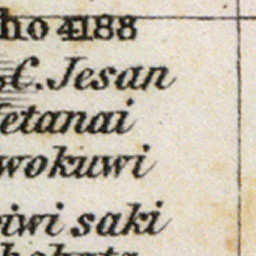 ho 4188
C. Jesan
etanai
wokuwi
iwi saki